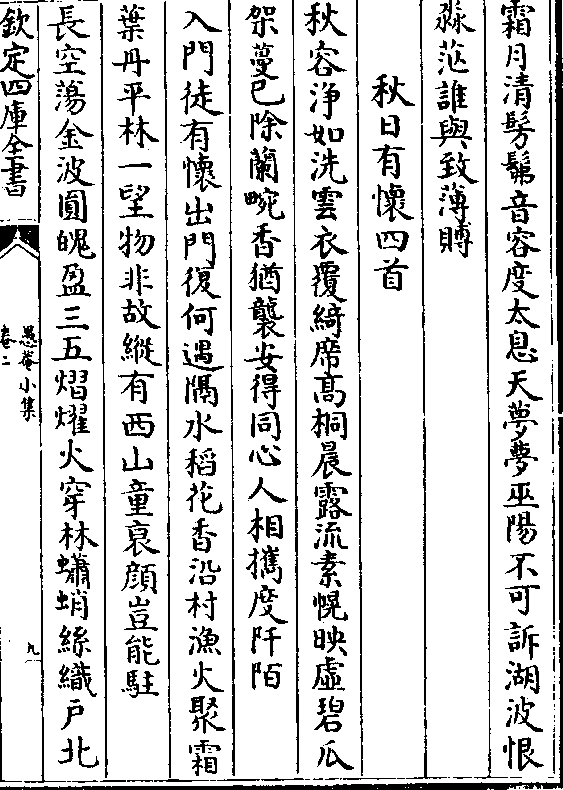 霜月清髣髴音容度太息天夢夢巫陽不可訴湖波恨
淼茫誰與致薄賻
秋日有懷四首
秋容浄如洗雲衣覆綺席高桐晨露流素幌映虚碧瓜
架蔓已除蘭畹香猶襲安得同心人相攜度阡陌
入門徒有懷出門復何遇隔水稻花香沿村漁火聚霜
葉丹平林一望物非故縱有西山童衰顔豈能駐
長空蕩金波圓魄盈三五熠燿火穿林蠨蛸絲織戸北
欽定四庫全書
愚菴小集
卷二
九